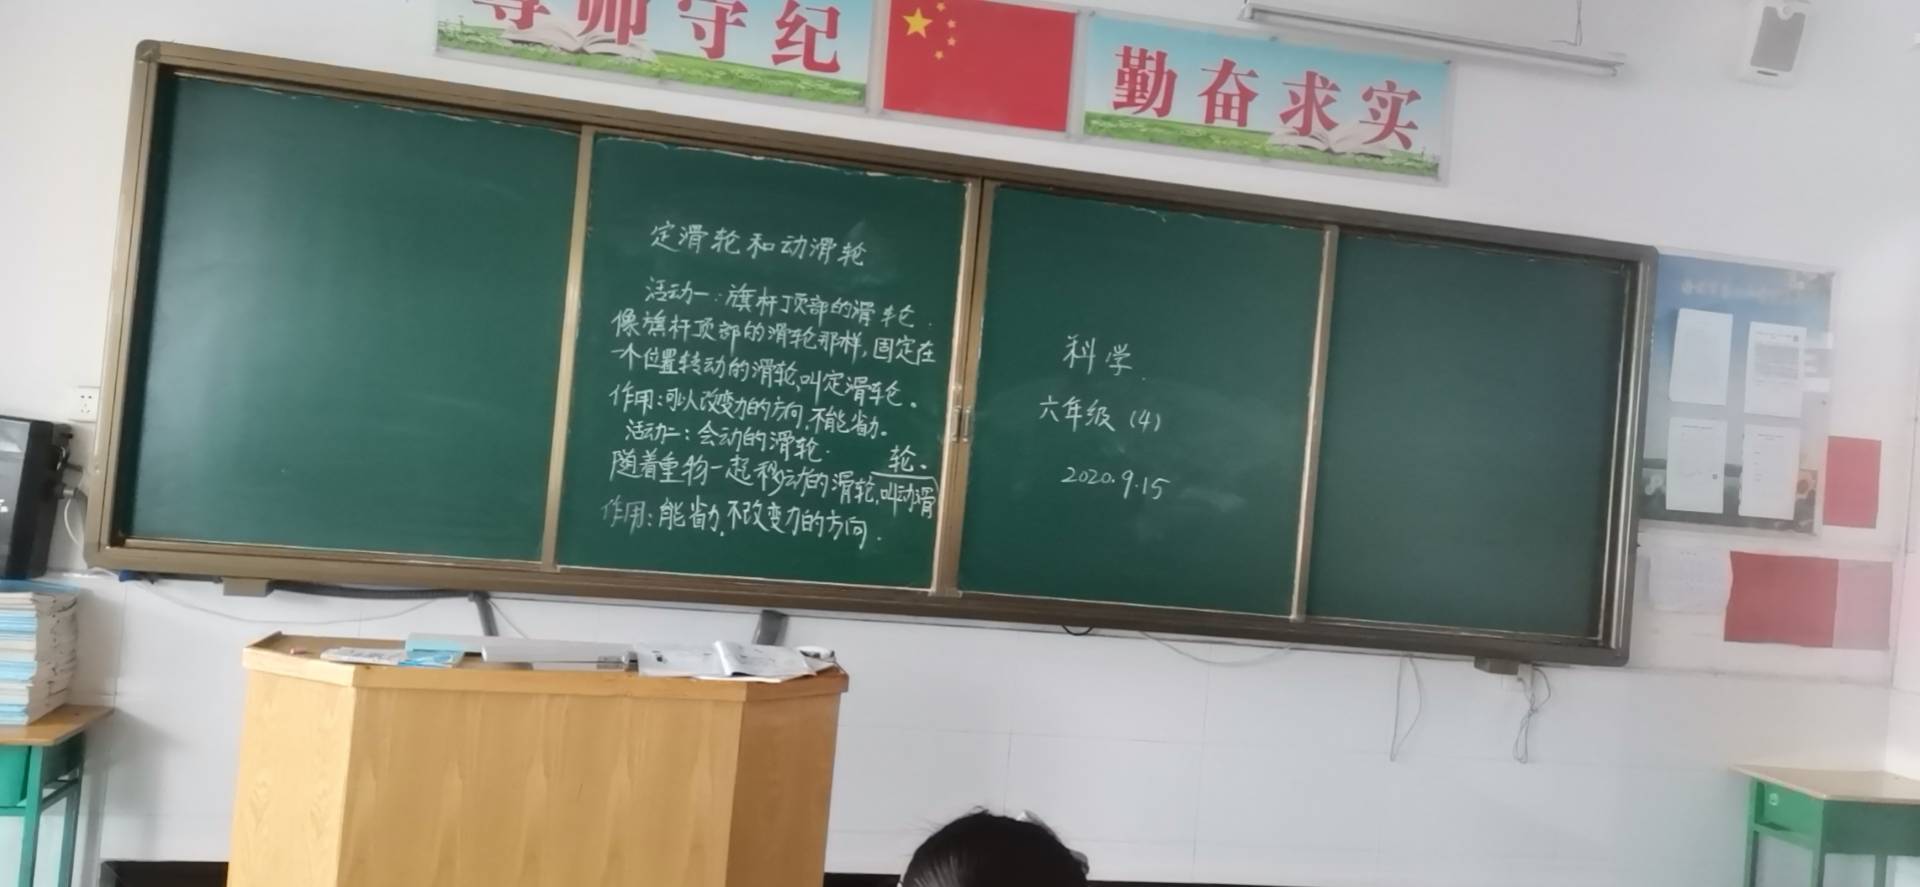 尊师守纪
勤奋求实
定滑轮和动滑轮
活动一:旗杆顶部的滑轮.
像旗杆顶部的滑轮那样,固定在
一个位置转动的滑轮,叫定滑轮。
作用:可以改变力的方向,不能省力。
活动二:会动的滑轮.
随着重物一起移动的滑轮,叫动滑
轮。
作用:能省力,不改变力的方向.
科学
六年级(4)
2020.9.15